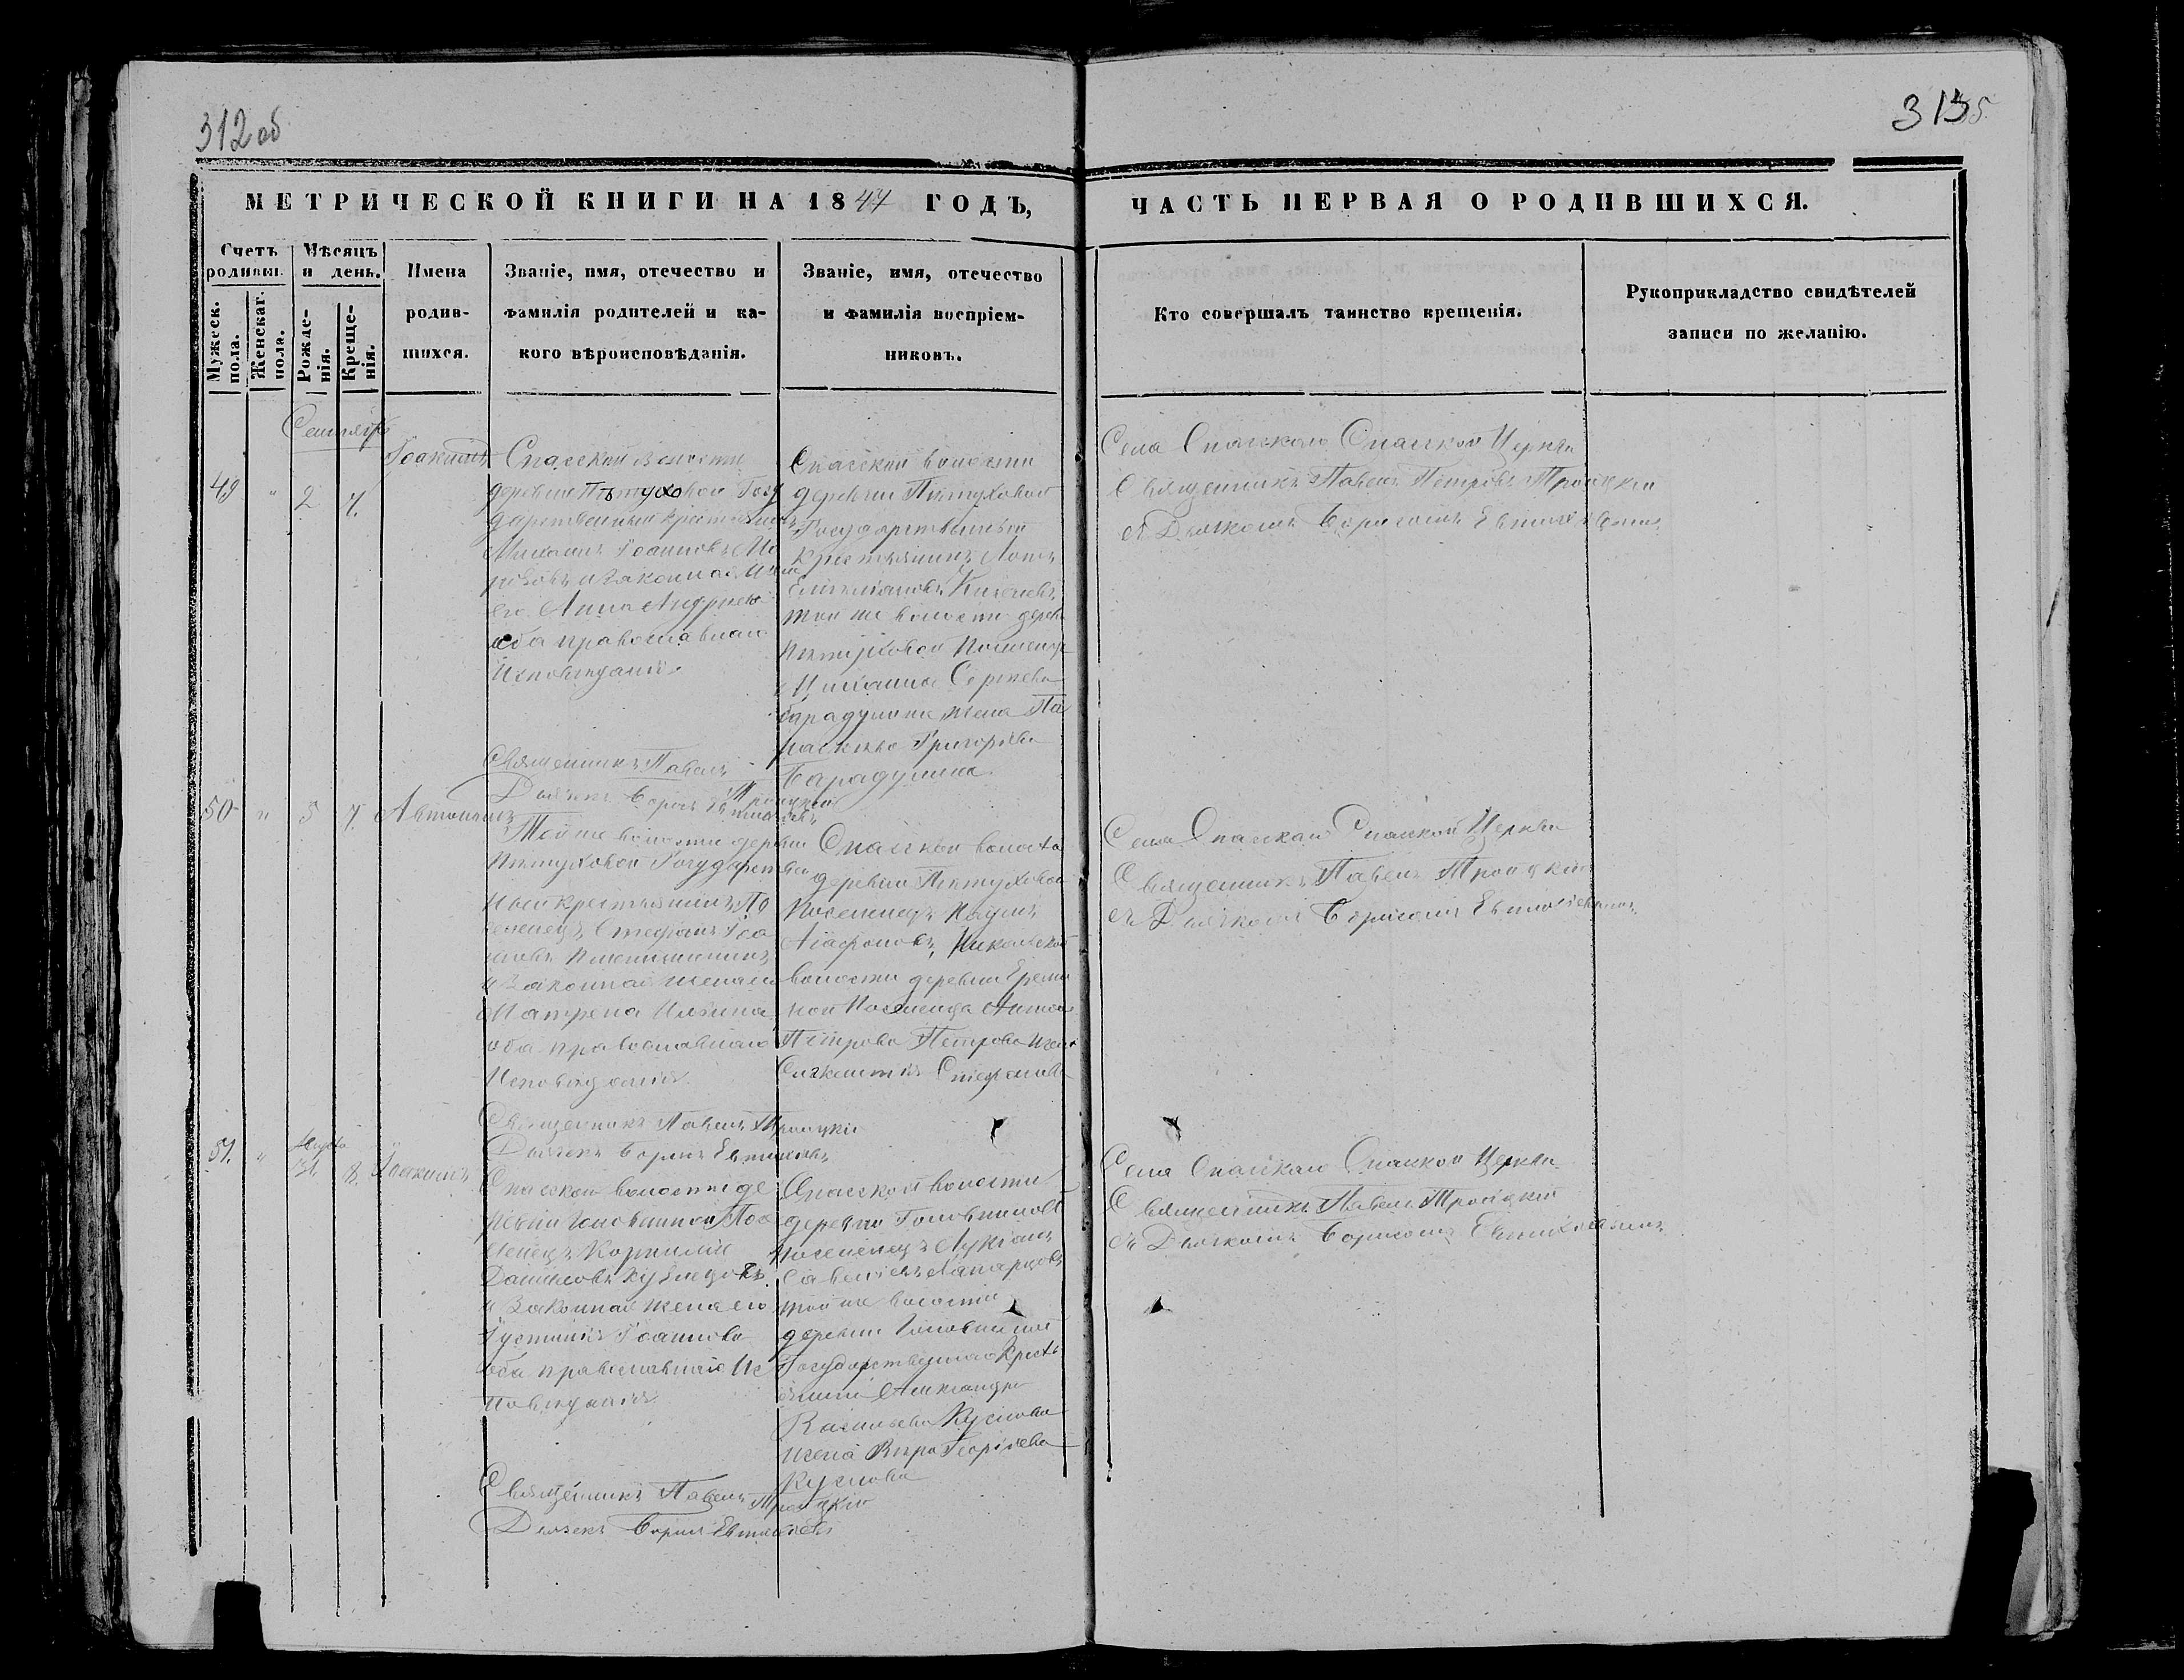 312 об
313
МЕТРИЧЕСКОЙ КНИГИ НА 1847 ГОДЪ,
ЧАСТЬ ПЕРВАЯ О РОДИВШИХСЯ.
Счетъ родивш.
Мужеск. пола.
Женскаг. пола.
Мѣсяцъ и день.
Рожденія.
Крещенія.
Имена
родив-
шихся.
Званіе, имя, отечество и
фамилія родителей и ка-
кого вѣроисповѣданія.
Званіе, имя, отечество
и фамилія воспріем-
никовъ.
Кто совершалъ таинство крещенія.
Рукоприкладство свидѣтелей
записи по желанію.
Сентябрь
49 " 2 7. Іоакимъ
Спасской волости
деревни Пѣтуховой Госу
дарственный крестьянинъ
Михаилъ Іоанновъ
и законная жена
его Анна Андреева
оба православнаго
Исповѣданія
Священникъ Павелъ Троицкій
Дьячекъ Борисъ Евтихіевъ
Спасской волости
деревни Пѣтуховой
Государственный
Крестьянинъ
той же волости дерев
Пѣтуховой Поселенца
Михаила Сергѣева
Барадулина жена Па
раскева Григорьева
Барадулина
Села Спасскаго Спасской Церкви
Священникъ Павелъ Петровъ Троицкій
съ Дьячкомъ Борисомъ Евтихіевымъ
50 " 5 7. Автономъ
Той же волости деревни
Пѣтуховой Государствен
ный крестьянинъ По
селенецъ Стефанъ Іоа
новъ
и Законная жена его
Матрена Ильина
оба православнаго
Исповѣданія
Священникъ Павелъ Троицкій
Дьячекъ Борисъ Евтихіевъ
Спасской волости
деревни Пѣтуховой
Поселенецъ Наумъ
Агафоновъ, Никольской
волости деревни Ереми
ной Поселенца Антона
Петрова Петрова жена
Стефанова
Села Спасскаго Спасской Церкви
Священникъ Павелъ Троицкій
съ Дьячкомъ Борисомъ Евтихіевымъ
51. " Августа 31. 8. Іоакимъ
Спасской волости де
ревни Головиной Посе
ленецъ Корнилій
Даниловъ Кузнецовъ
и Законная жена его
Іустинія Іоаннова
оба православнаго Ис
повѣданія
Священникъ Павелъ Троицкій
Дьячекъ Борисъ Евтихіевъ
Спасской волости
деревни Головиной
поселенецъ Лукіанъ
Савельевъ
той же волости
деревни Головиной
Государственнаго Кресть
янина Александра
Васильева Кускова
жена Вѣра Георгіева
Кускова
Села Спасскаго Спасской Церкви
Священникъ Павелъ Троицкій
съ Дьячкомъ Борисомъ Евтихіевымъ